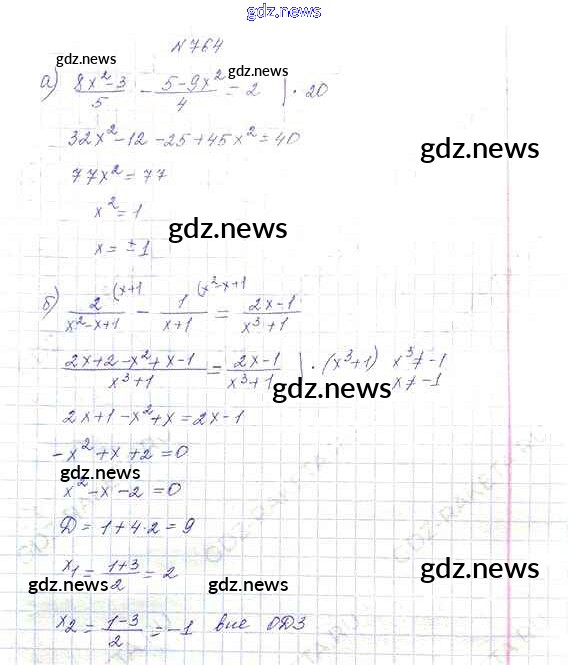 gdz.news
N764
gdz.news
gdz.news
а) (8x²-3)/5 - (5-9x²)/4 = 2 | · 20
32x²-12-25+45x²=40
gdz.news
77x²=77
x²=1
gdz.news
x=±1
б) 2/(x²-x+1) (x+1 - 1/(x+1) (x²-x+1 = (2x-1)/(x³+1)
(2x+2-x²+x-1)/(x³+1) = (2x-1)/(x³+1) | · (x³+1) x³≠-1
x≠-1
gdz.news
2x+1-x²+x=2x-1
-x²+x+2=0
gdz.news
x²-x-2=0
GDZ-RAKETA.RU
Д=1+4·2=9
x₁=(1+3)/2=2
gdz.news
gdz.news
gdz.news
x₂=(1-3)/2=-1 вне ОДЗ